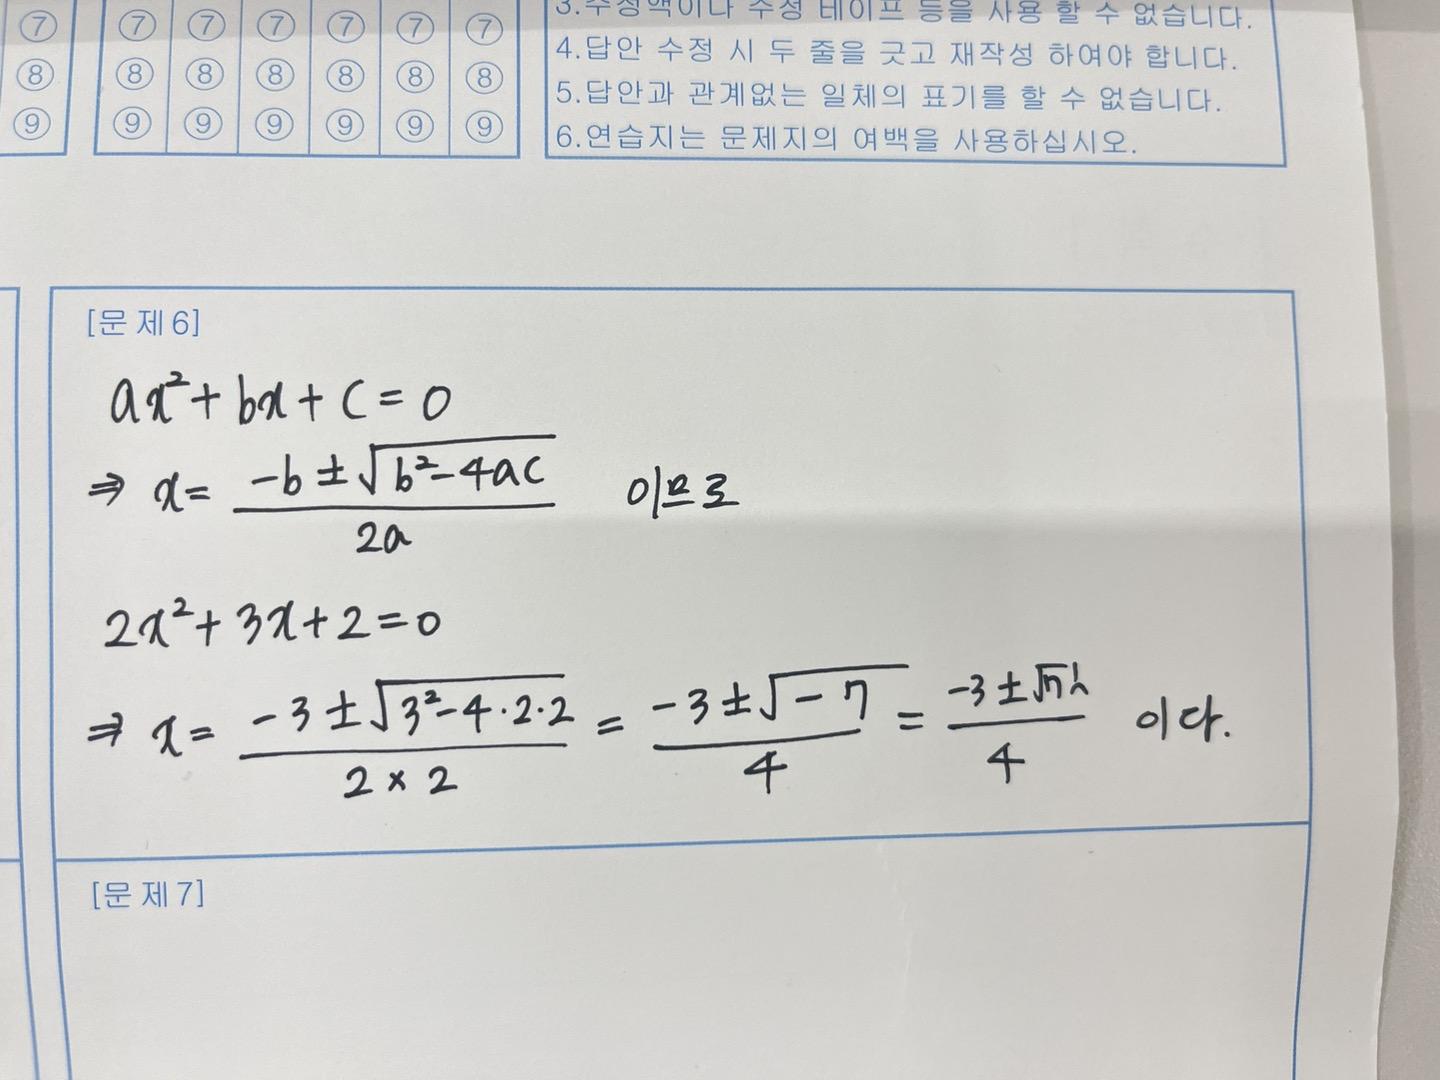 ⑦ ⑦ ⑦ ⑦ ⑦ ⑦ ⑦
⑧ ⑧ ⑧ ⑧ ⑧ ⑧ ⑧
⑨ ⑨ ⑨ ⑨ ⑨ ⑨ ⑨
3.수정액이나 수정 테이프 등을 사용 할 수 없습니다.
4.답안 수정 시 두 줄을 긋고 재작성 하여야 합니다.
5.답안과 관계없는 일체의 표기를 할 수 없습니다.
6.연습지는 문제지의 여백을 사용하십시오.
[문 제 6]
ax²+bx+c=0
⇒ x= (-b±√(b²-4ac))/(2a) 이므로
2x²+3x+2=0
⇒ x= (-3±√(3²-4·2·2))/(2×2) = (-3±√(-7))/4 = (-3±√7i)/4 이다.
[문 제 7]